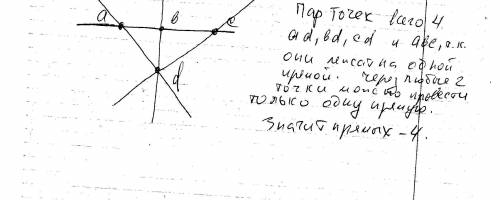 a в c
d
Пар точек всего 4
ad, bd, cd и abc, т.к.
они лежат на одной
прямой. Через любые 2
точки можно провести
только одну прямую.
Значит прямых - 4.